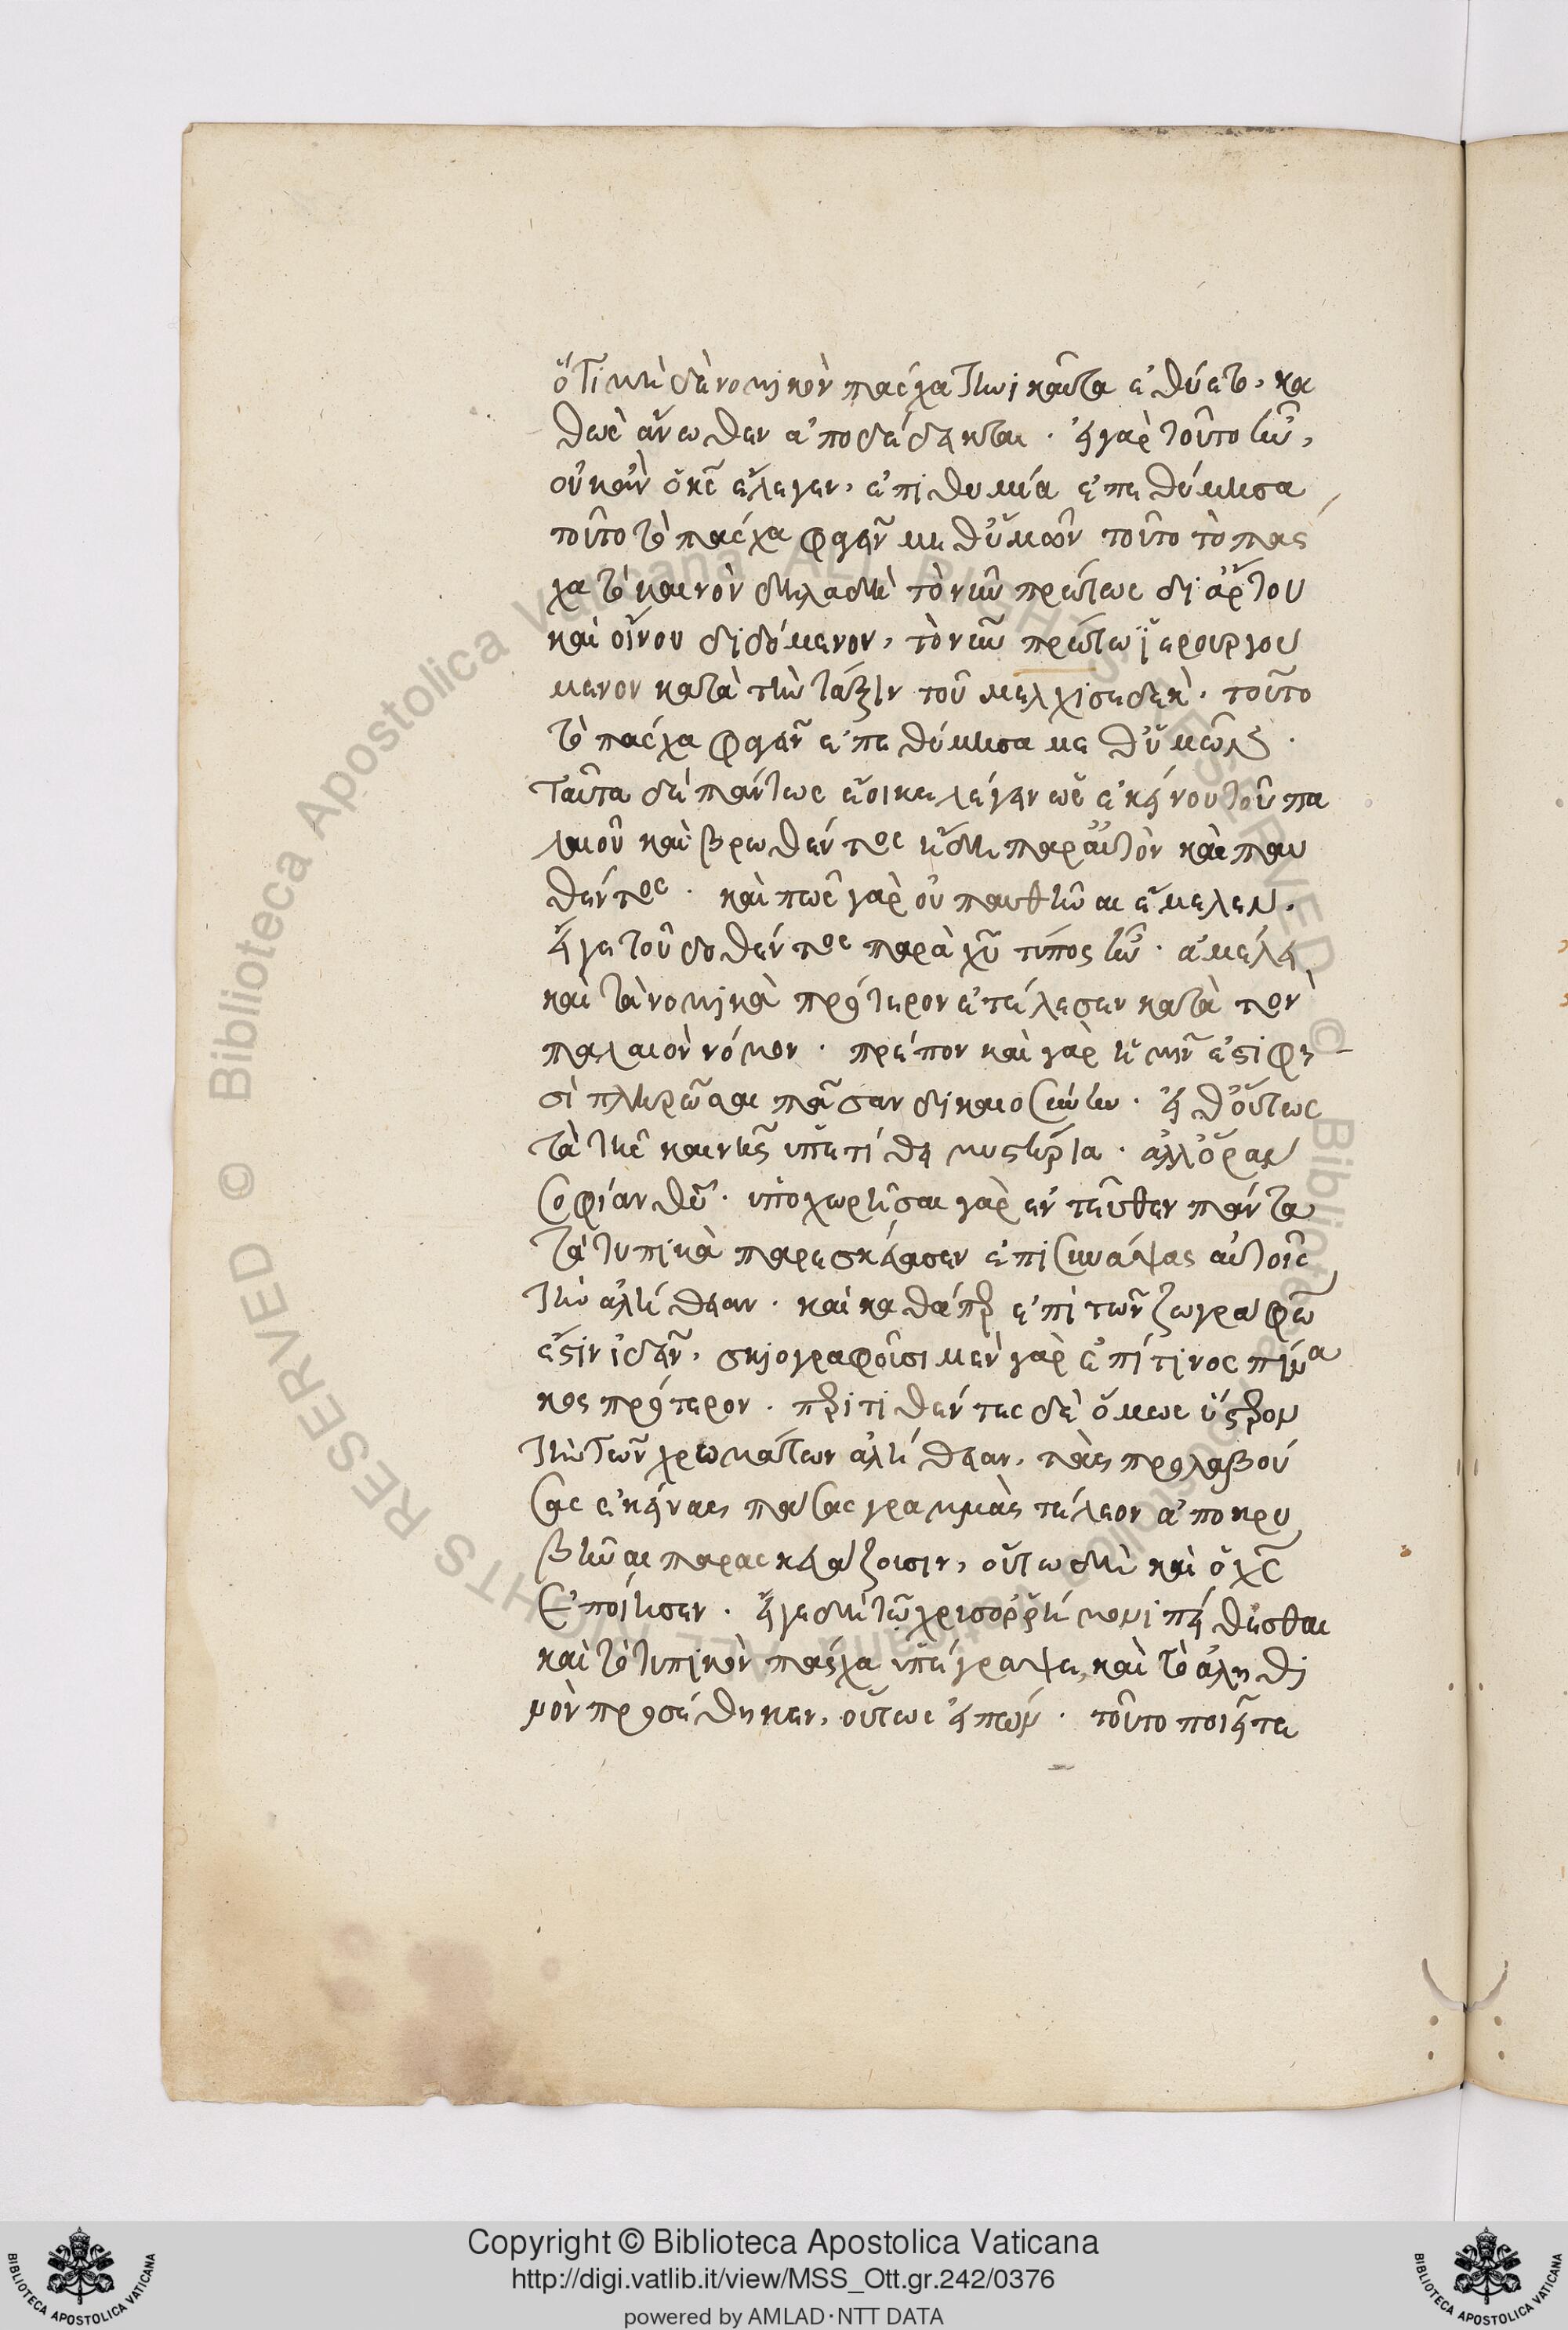 ὅτι μὴ δὲ νομικὸν πάσχα τηνικαῦτα ἐθύετο, κα
θὼς ἄνωθεν ἀποδέδεικται. εἰ γὰρ τοῦτο ἦν,
οὐκ ἂν ὁ κς ἔλεγεν, ἐπιθυμία ἐπεθύμησα
τοῦτο τὸ πάσχα φαγεῖν μεθ' ὑμῶν τοῦτο τὸ πάσ
χα τὸ καινὸν δηλαδὴ τὸ νῦν πρώτως δι' ἄρτου
καὶ οἴνου διδόμενον, τὸ νῦν πρώτω ἱερουργού
μενον κατὰ τὴν τάξιν τοῦ μελχισεδέκ. τοῦτο
τὸ πάσχα φαγεῖν ἐπεθύμησα μεθ' ὑμῶν.
ταῦτα δὲ πάντως ἔοικε λέγειν ὡς ἐκείνου τοῦ πα
λαιοῦ καὶ βρωθέντος ἤδη παρ' αὐτὸν καὶ παυ
θέντος. καὶ πῶς γὰρ οὐ παυθῆναι ἔμελεν.
εἴγε τοῦ δοθέντος παρὰ χυ τύπος ἦν. ἀμέλει
καὶ τὰ νομικὰ πρότερον ἐτέλεσεν κατὰ τὸν
παλαιὸν νόμον. πρέπον καὶ γὰρ ἡμῖν ἐστι φη
σὶ πληρῶσαι πᾶσαν δικαιοσύνην. εἶθ' οὕτως
τὰ τῆς καινῆς ὑπετίθει μυστήρια. ἀλλ' ὅρα
σοφίαν θυ. ὑποχωρῆσαι γὰρ ἐντεῦθεν πάντα
τὰ τυπικὰ παρεσκεύασεν ἐπισυνάψας αὐτοῖς
τὴν ἀλήθειαν. καὶ καθάπερ ἐπὶ τῶν ζωγράφων
ἔστιν ἰδεῖν, σκιογραφοῦσι μὲν γὰρ ἐπί τινος πίνα
κος πρότερον. περιτιθέντες δὲ ὅμως ὕστερον
τὴν τῶν χρωμάτων ἀλήθειαν, τὰς προλαβού
σας ἐκείνας πάσας γραμμὰς τέλεον ἀποκρυ
βῆναι παρασκευάζουσιν, οὕτω δὴ καὶ ὁ χς
ἐποίησεν. εἴγε δὴ τῷ χρυσορρήμονι πείθεσθαι
καὶ τὸ τυπικὸν πάσχα ὑπέγραψε, καὶ τὸ ἀληθι
νὸν προσέθηκεν, οὕτως εἰπών. τοῦτο ποιεῖτε
Copyright © Biblioteca Apostolica Vaticana
http://digi.vatlib.it/view/MSS_Ott.gr.242/0376
powered by AMLAD·NTT DATA